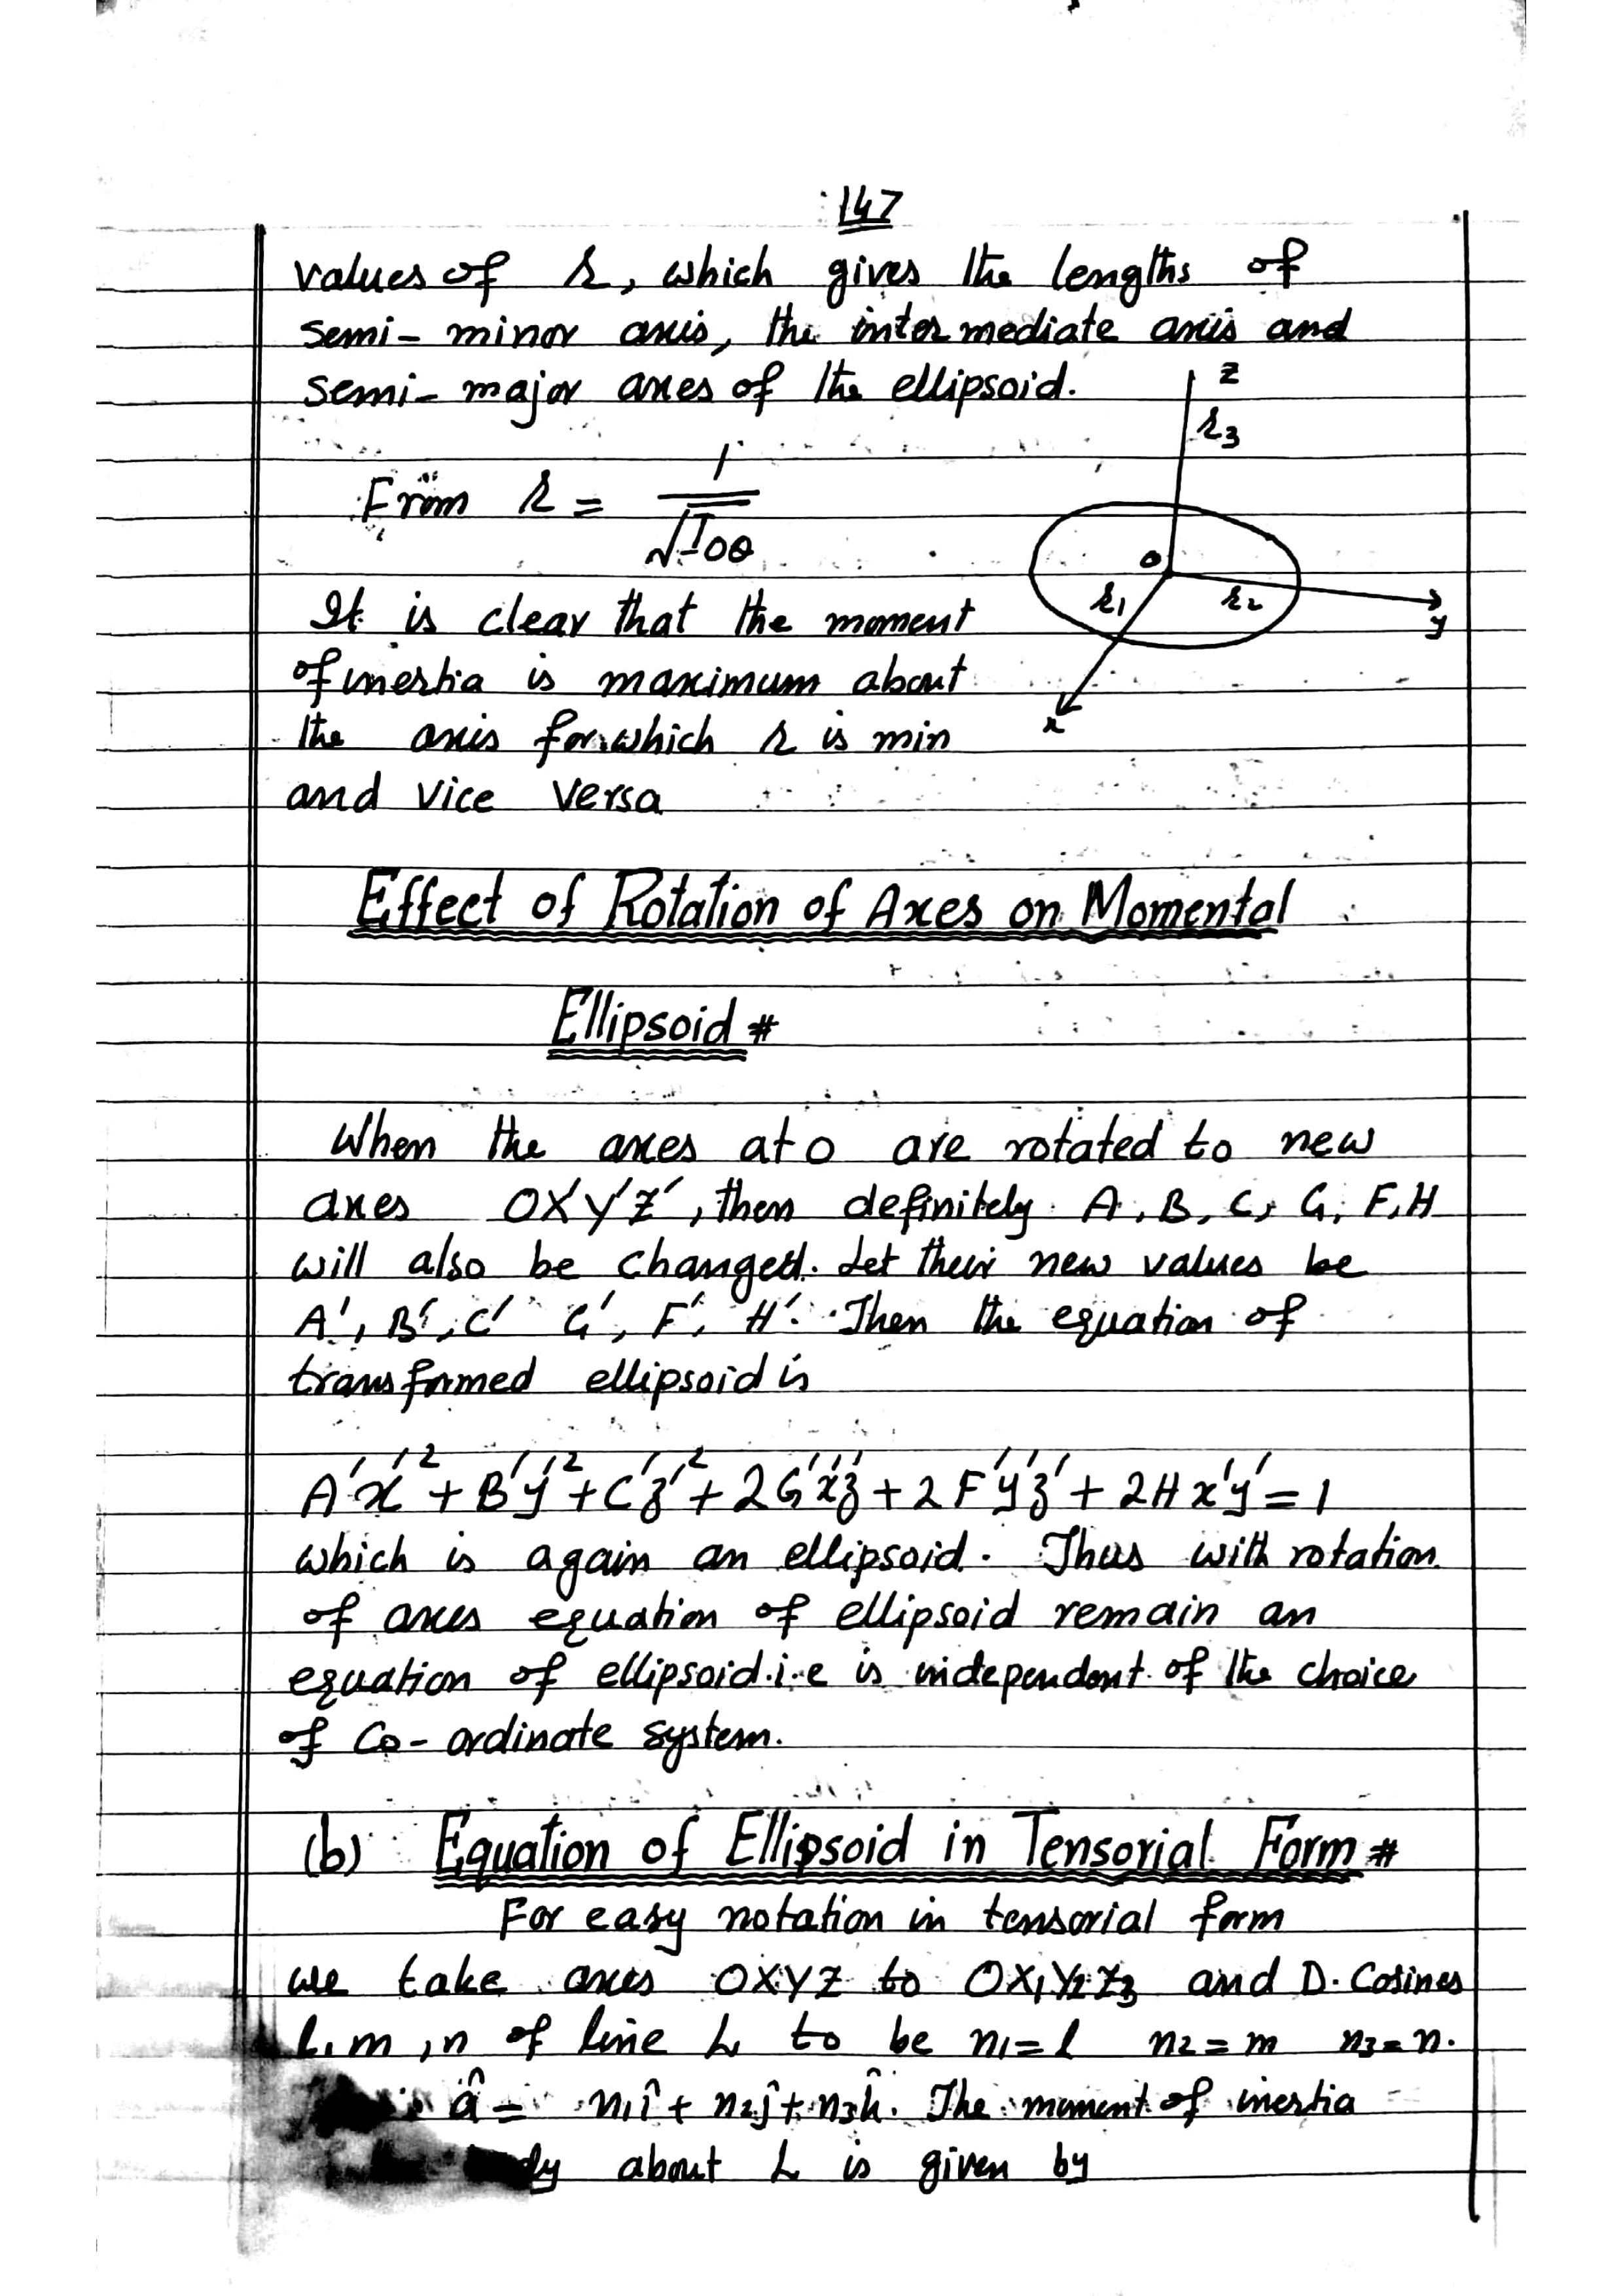 147
values of r, which gives the lengths of
semi-minor axis, the intermediate axis and
semi-major axes of the ellipsoid.
z
r3
From r = 1/√I_OQ
O
r1
r2
y
x
It is clear that the moment
of inertia is maximum about
the axis for which r is min
and vice versa
Effect of Rotation of Axes on Momental
Ellipsoid #
When the axes at O are rotated to new
axes OX'Y'Z', then definitely A, B, C, G, F, H
will also be changed. Let their new values be
A', B', C' G', F', H'. Then the equation of
transformed ellipsoid is
A'x'²+B'y'²+C'z'²+2G'x'z'+2F'y'z'+2Hx'y'=1
which is again an ellipsoid. Thus with rotation
of axes equation of ellipsoid remain an
equation of ellipsoid.i.e is independent of the choice
of Co-ordinate system.
(b) Equation of Ellipsoid in Tensorial Form #
For easy notation in tensorial form
we take axes OXYZ to OX1Y2Z3 and D.Cosines
l,m,n of line L to be n1=l n2=m n3=n.
â = n1î + n2ĵ + n3k̂. The moment of inertia
about L is given by